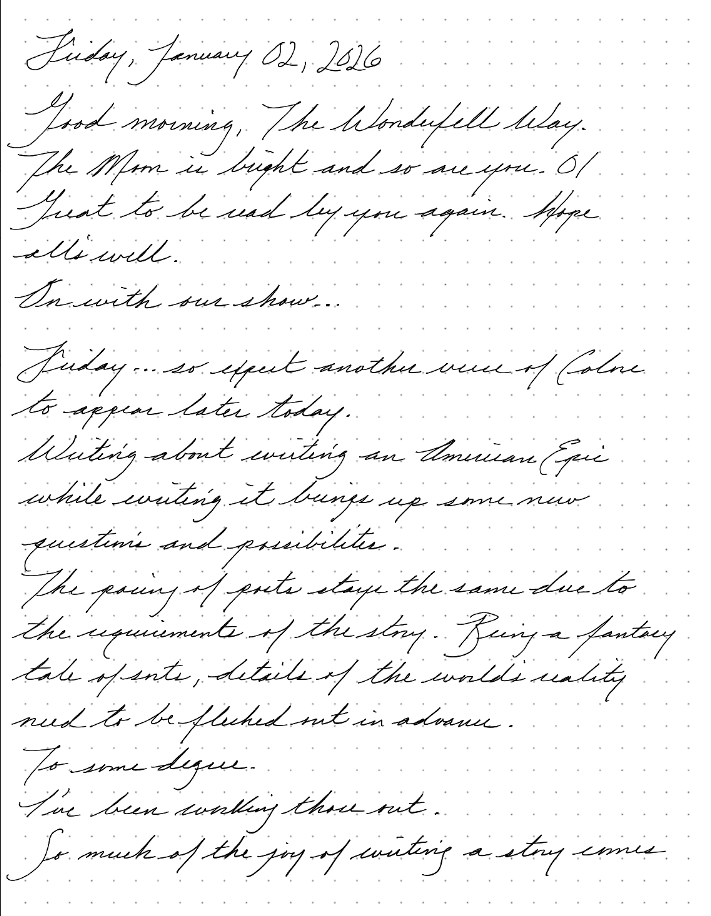 Friday, January 02, 2026
Good morning, The Wonderfell Way.
The Moon is bright and so are you. O/
Great to be read by you again. Hope
all's well.
On with our show...
Friday... so expect another verse of Colore
to appear later today.
Writing about writing an American Epic
while writing it brings up some new
questions and possibilities.
The pacing of posts stays the same due to
the requirements of the story. Being a fantasy
tale of sorts, details of the world's reality
need to be fleshed out in advance.
To some degree.
I've been working those out.
So much of the joy of writing a story comes